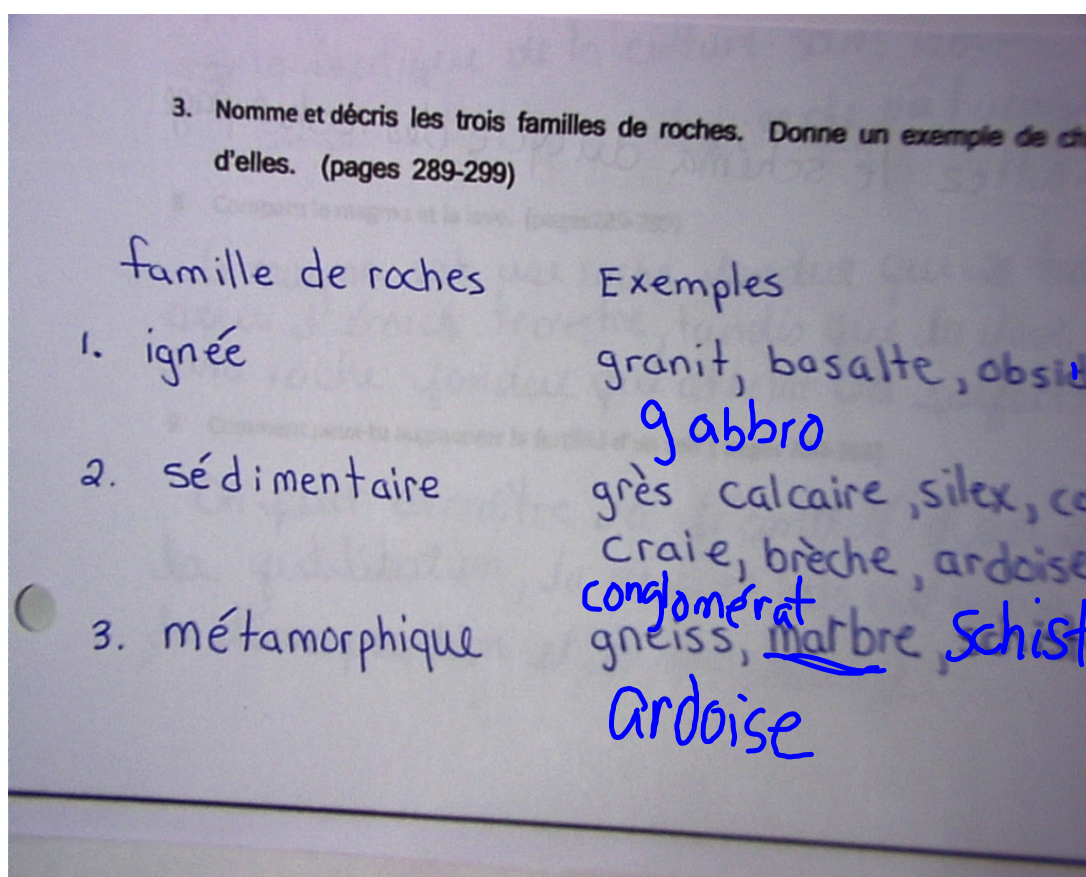 3. Nomme et décris les trois familles de roches. Donne un exemple de
d'elles. (pages 289-299)
famille de roches Exemples
1. ignée granit, basalte,
gabbro
2. sédimentaire grès calcaire, silex,
craie, brèche, ardoise
conglomérat
3. métamorphique gneiss, marbre, schist
ardoise